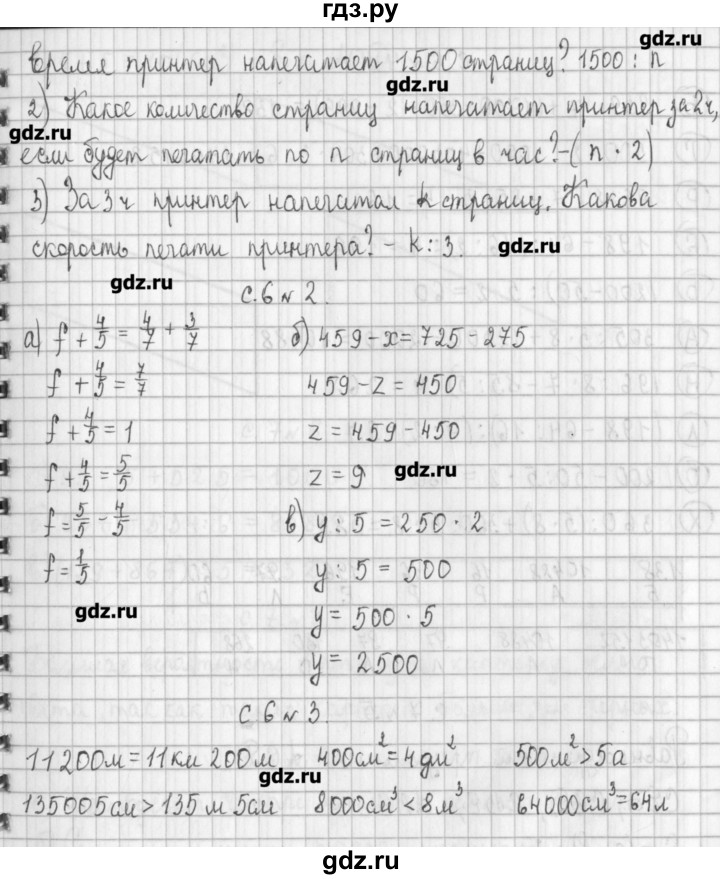 гдз.ру
время принтер напечатает 1500 страниц? 1500 : n
gdz.ru
gdz.ru
2) Какое количество страниц напечатает принтер за 2ч,
gdz.ru
если будет печатать по n страниц в час? - (n · 2)
3) За 3ч принтер напечатал k страниц. Какова
скорость печати принтера? - k : 3.
gdz.ru
gdz.ru
с.6 № 2.
а) f + 4/5 = 4/7 + 3/7
f + 4/5 = 7/7
f + 4/5 = 1
f + 4/5 = 5/5
f = 5/5 - 4/5
f = 1/5
gdz.ru
б) 459 - x = 725 - 275
459 - z = 450
z = 459 - 450
z = 9
gdz.ru
в) y : 5 = 250 · 2
y : 5 = 500
y = 500 · 5
y = 2500
с.6 № 3.
11200м = 11км 200м 400см² = 4дм² 500м² > 5а
gdz.ru
135005см > 135м 5см 8000см³ < 8м³ 64000см³ = 64л
gdz.ru